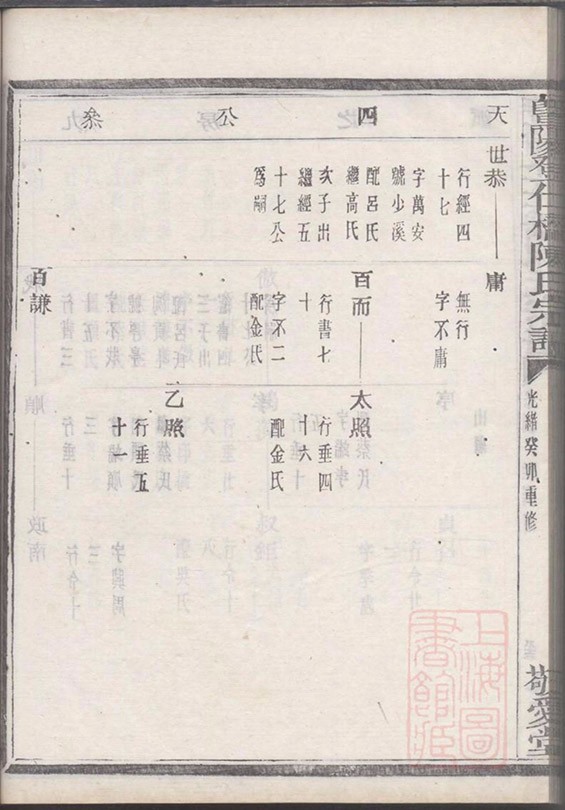 暨陽登仕橋陳氏宗譜
光緒癸卯重修
敬愛堂
天 四 公 叅
世恭
行經四
十七
字萬安
號少溪
配呂氏
繼高氏
亥子出
繼經五
十七公
爲嗣
庸
無行
字不庸
百而
行書七
十
字不二
配金氏
百謙
太照
行垂四
十六
配金氏
乙照
行垂五
十一
上海圖
書館藏